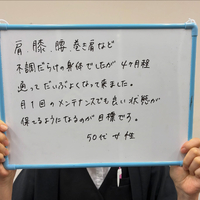 肩、膝、腰、巻き肩など
不調だらけの身体でしたが 4ヶ月程
通ってだいぶよくなって来ました。
月1回のメンテナンスでも良い状態が
保てるようになるのが目標です。
50代 女性